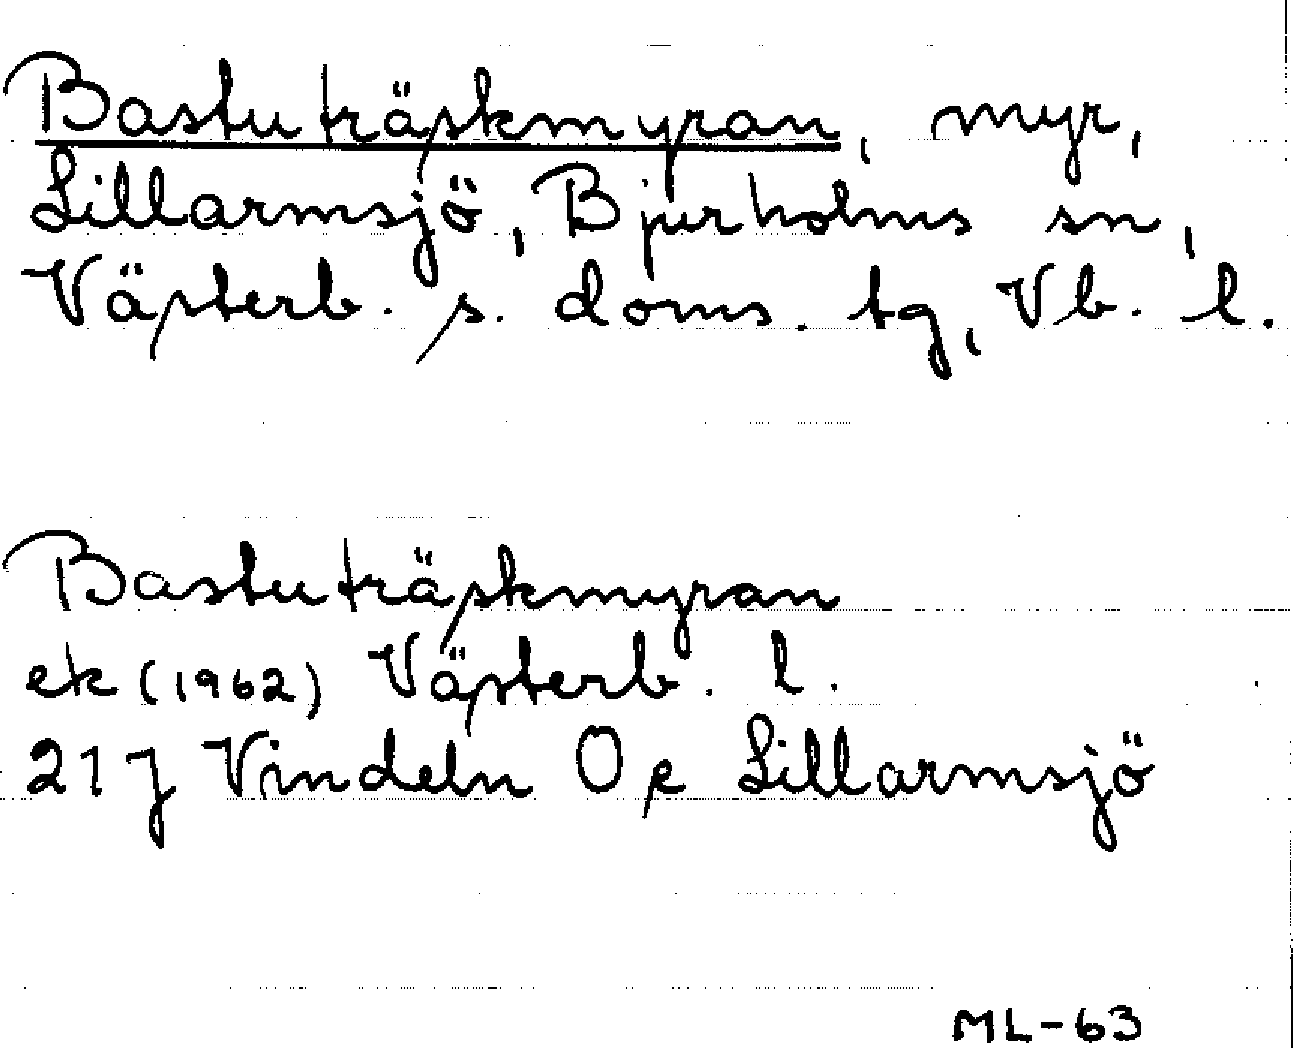 Bastuträskmyran, myr,
Lillarmsjö, Bjurholms sn,
Västerb. s. doms. tg, Vb. l.
Bastuträskmyran
ek (1962) Västerb. l.
21 J Vindeln Oe Lillarmsjö
ML-63